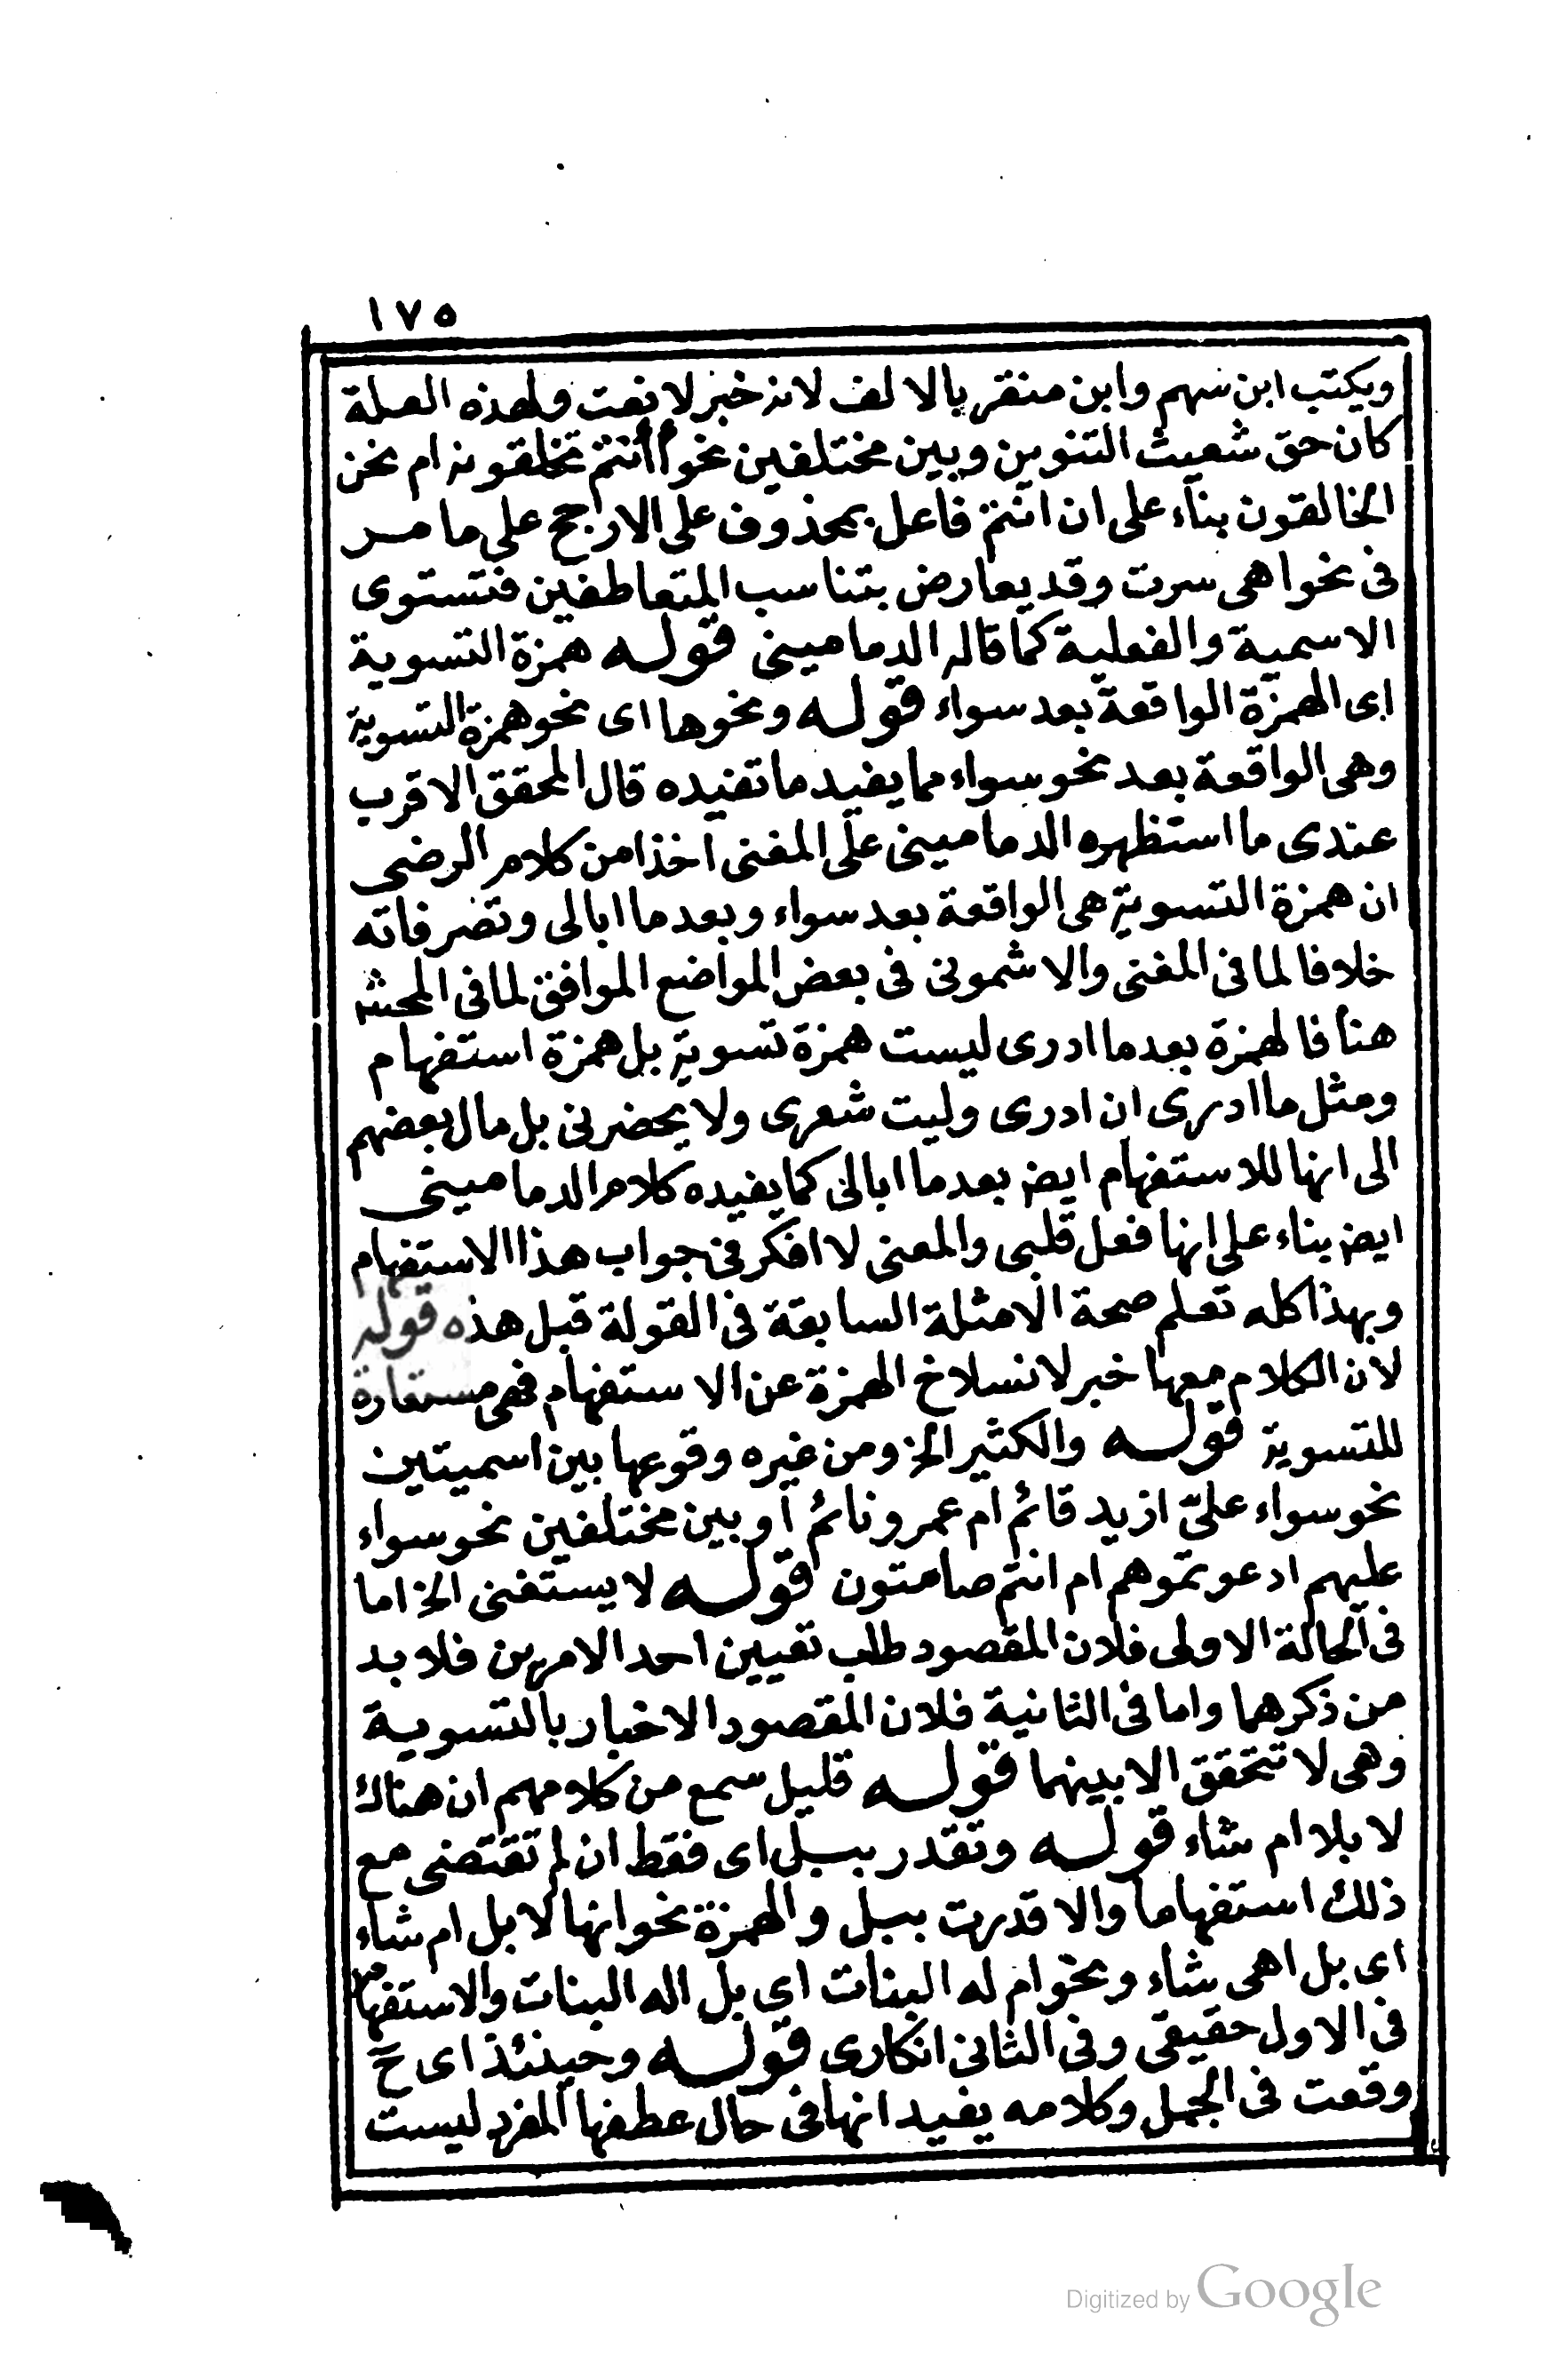 ١٧٥
ويكتب ابن سهم وابن منقر بالالف لانه خبر لا نعت ولهذه العلة
كان حق شعيث التنوين وبين مختلفين نحو أأنتم تخلقونه ام نحن
الخالقون بناء على ان انتم فاعل بمحذوف على الارجح على ما مر
فى نحو اهى سرت وقد يعارض بتناسب المتعاطفين فتستوى
الاسمية والفعلية كما قاله الدمامينى قوله همزة التسوية
اى الهمزة الواقعة بعد سواء قوله ونحوها اى نحو همزة التسوية
وهى الواقعة بعد نحو سواء مما يفيد ما تفيده قال المحقق الاقرب
عندى ما استظهره الدمامينى على المغنى اخذا من كلام الرضى
ان همزة التسوية هى الواقعة بعد سواء وبعد ما ابالى وتصرفاته
خلافا لما فى المغنى والاشمونى فى بعض المواضع الموافق لما فى المحش
هنا فالهمزة بعد ما ادرى ليست همزة تسوية بل همزة استفهام
ومثل ما ادرى ان ادرى وليت شعرى ولا يحضرنى بل مال بعضهم
الى انها للاستفهام ايض بعد ما ابالى كما يفيده كلام الدمامينى
ايض بناء على انها فعل قلبى والمعنى لا افكر فى جواب هذا الاستفهام
وبهذا كله تعلم صحة الامثلة السابقة فى القولة قبل هذه قوله
لان الكلام معها خبر لانسلاخ الهمزة عن الاستفهام فهى مستعارة
للتسوية قوله والكثير الخ ومن غيره وقوعها بين اسميتين
نحو سواء علىّ ازيد قائم ام عمرو نائم او بين مختلفين نحو سواء
عليهم ادعوتموهم ام انتم صامتون قوله لا يستغنى الخ اما
فى الحالة الاولى فلان المقصود طلب تعيين احد الامرين فلا بد
من ذكرهما واما فى الثانية فلان المقصود الاخبار بالتسوية
وهى لا تتحقق الا بينهما قوله قليل سمع من كلامهم ان هناك
لا بلا ام شاء قوله وتقدر ببل اى فقط ان لم تقتضى مع
ذلك استفهاما والا قدرت ببل والهمزة نحو انها لا بل ام شاء
اى بل اهى شاء ونحو ام له البنات اى بل اله البنات والاستفهام
فى الاول حقيقى وفى الثانى انكارى قوله وحينئذ اى ح
وقعت فى الجمل وكلامه يفيد انها فى حال عطفها المفرد ليست
Digitized by Google